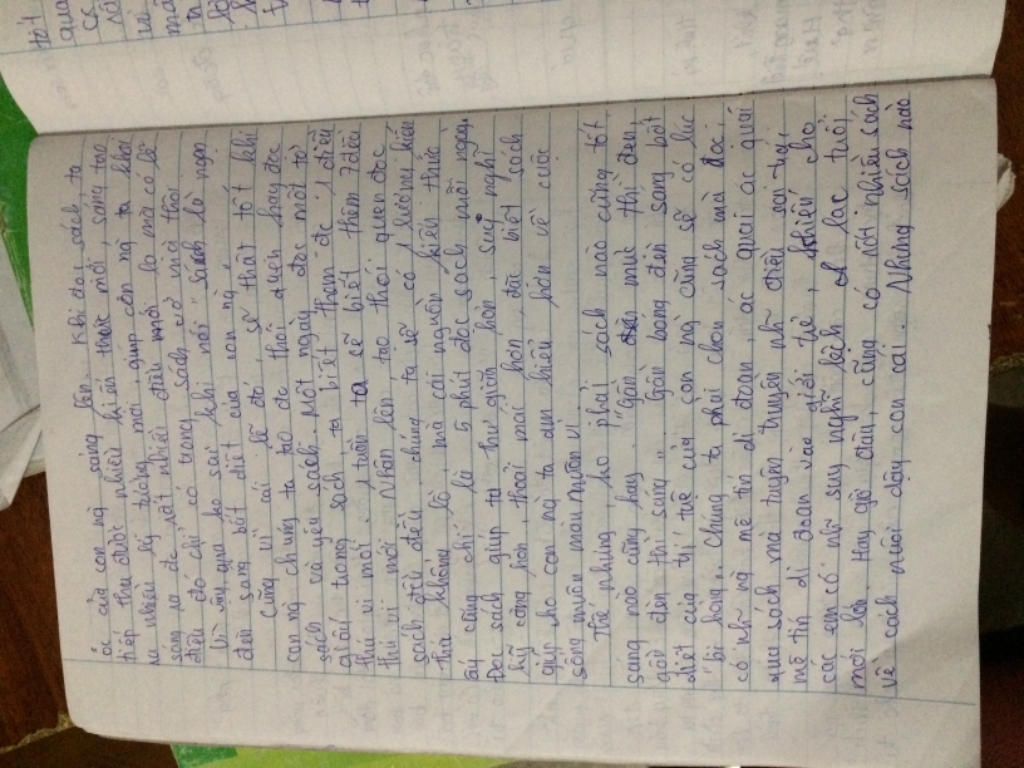 óc của con ng sáng lên. Khi đọc sách, ta
tiếp thu được nhiều kiến thức mới, sáng tạo
ra nhiều lý tưởng mới, giúp con ng ta khai
sáng ra đc rất nhiều điều mới lạ mà có lẽ
điều đó chỉ có trong sách vở mà thôi.
Vì vậy, qua ko sai khi nói "sách là ngọn
đèn sáng bất diệt của con ng".
Cũng vì cái lẽ đó, sẽ thật tốt khi
con ng chúng ta tạo đc thói quen hay đọc
sách và yêu sách. Một ngày đọc một tờ
giấy trong sách ta biết thêm đc 1 điều
thú vị mới. 1 tuần ta sẽ biết thêm 7 điều
thú vị mới. Nhân lên, tạo thói quen đọc
sách đều đều, chúng ta sẽ có 1 lượng kiến
thức khổng lồ, mà cái nguồn kiến thức
ấy cũng chỉ là 5 phút đọc sách mỗi ngày.
Đọc sách giúp ta thư giãn hơn, suy nghĩ
kỹ càng hơn, thoải mái hơn, đặc biệt sách
giúp ho con ng ta am hiểu hơn về cuộc
sống muôn màu muôn vị.
Thế nhưng, ko phải sách nào cũng tốt
sáng nào cũng hay. "Gần mực thì đen
gần đèn thì sáng". Gần bóng đèn sáng bất
diệt của trí tuệ của con ng cũng sẽ có lúc
"bị bỏng". Chúng ta phải chọn sách mà đọc,
có nhữ ng mê tín dị đoan, ác quái ác quái
qua sách mà tuyên truyền nhữ điều sai trái
mê tín dị đoan vào giới trẻ, khiến cho
các em có nhữ suy nghĩ lệch lạc tuổi
mới lớn. Hay giờ đây, cũng có nơi nhiều sách
về cách nuôi dạy con cái. Những sách nào